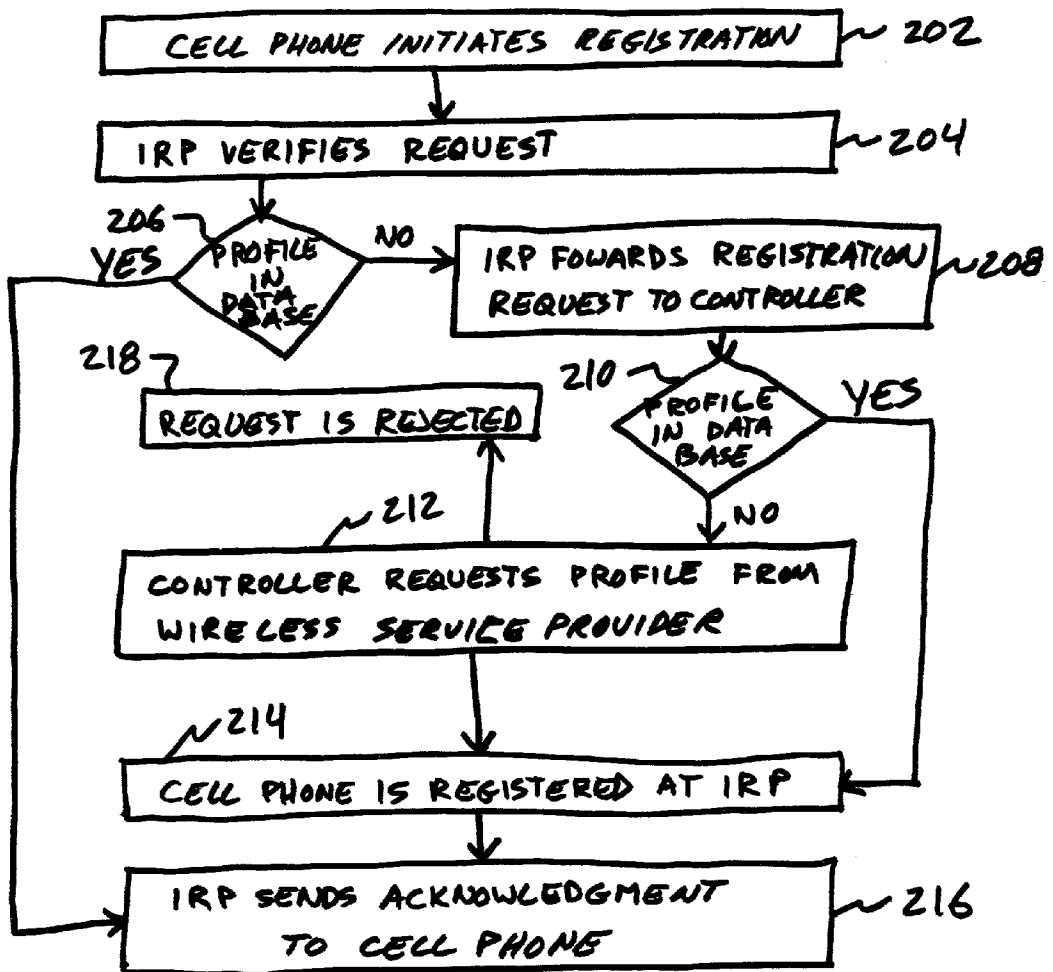 CELL PHONE INITIATES REGISTRATION
202
IRP VERIFIES REQUEST
204
206
YES
PROFILE
IN
DATA
BASE
NO
IRP FOWARDS REGISTRATION
REQUEST TO CONTROLLER
208
218
REQUEST IS REJECTED
210
PROFILE
IN DATA
BASE
YES
NO
212
CONTROLLER REQUESTS PROFILE FROM
WIRELESS SERVICE PROVIDER
214
CELL PHONE IS REGISTERED AT IRP
IRP SENDS ACKNOWLEDGMENT
TO CELL PHONE
216